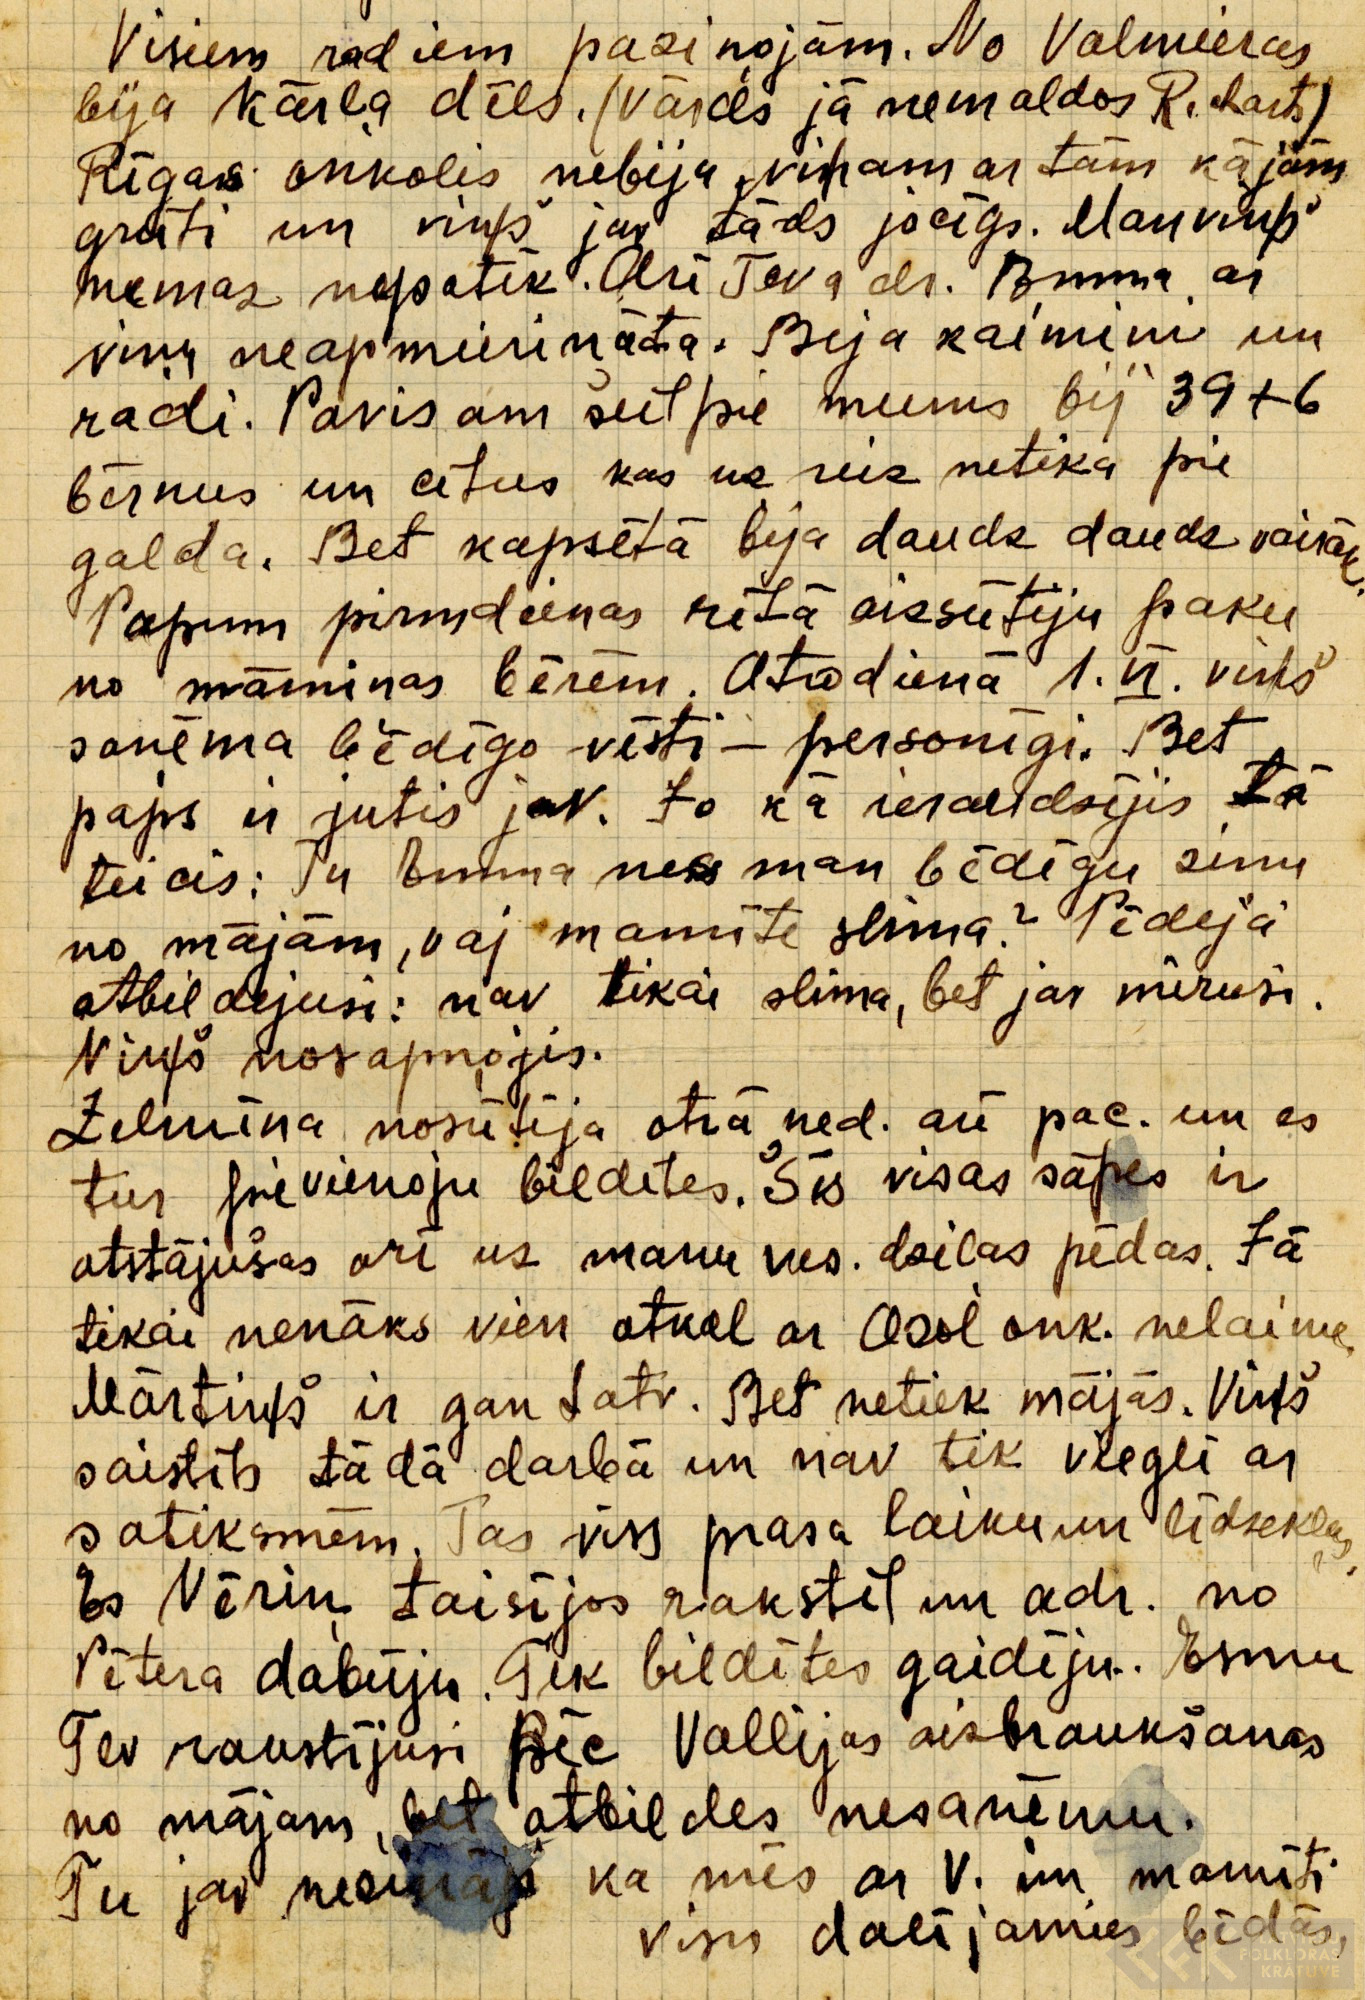 Visiem radiem paziņojām. No Valmieras
bija Kārļa dēls. (Vārds jā nemaldos Richarts)
Rīgas onkolis nebija, viņam ar tām kājām
grūti un viņš jav tāds jocīgs. Man viņš
nemaz nepatīk. Arī Teva dr. Emma ar
viņu neapmierināta. Bija kaimiņi un
radi. Pavisam šeit pie mums bij 39+6
bērnus un citus kas uz reiz netika pie
galda. Bet kapsētā bija daudz daudz vairāk.
Papum pirmdienas rītā aizsūtiju paku
no māmiņas bērēm. Otrdienā 1. VI. viņš
saņēma bēdīgo vēsti – personīgi. Bet
paps ir jutis jav. To kā ieraudsījis tā
teicis: Tu Emma nes man bēdīgu ziņu
no mājām, vaj mamīte slima? Pēdejā
atbildejusi: nav tikai slima, bet jav mirusi.
Viņš nosapņojis.
Zelmīna nosūtīja otrā ned. arī pac. un es
tur pievienoju bildītes. Šīs visas sāpes ir
atstājušas arī uz manu ves. dziļas pēdas. Tā
tikai nenāks vien atkal ar Ozol onk. nelaime
Mārtiņš ir gan Latv. Bet netiek mājās. Viņš
saistīts tādā darbā un nav tik viegli ar
satiksmēm. Tas viss prasa laiku un līdzekļus.
Es Vēriņ taisījos rakstīt un adr. no
Pētera dabūju. Tik bildītes gaidīju. Esmu
Tev rakstījusi pēc Vallijas aizbraukšanas
no mājam, bet atbildes nesaņēmu.
Tu jav nezināji ka mēs ar V. un mamīti
visu dalījamies bēdās,
FOLKLORAS
KRĀTUVE